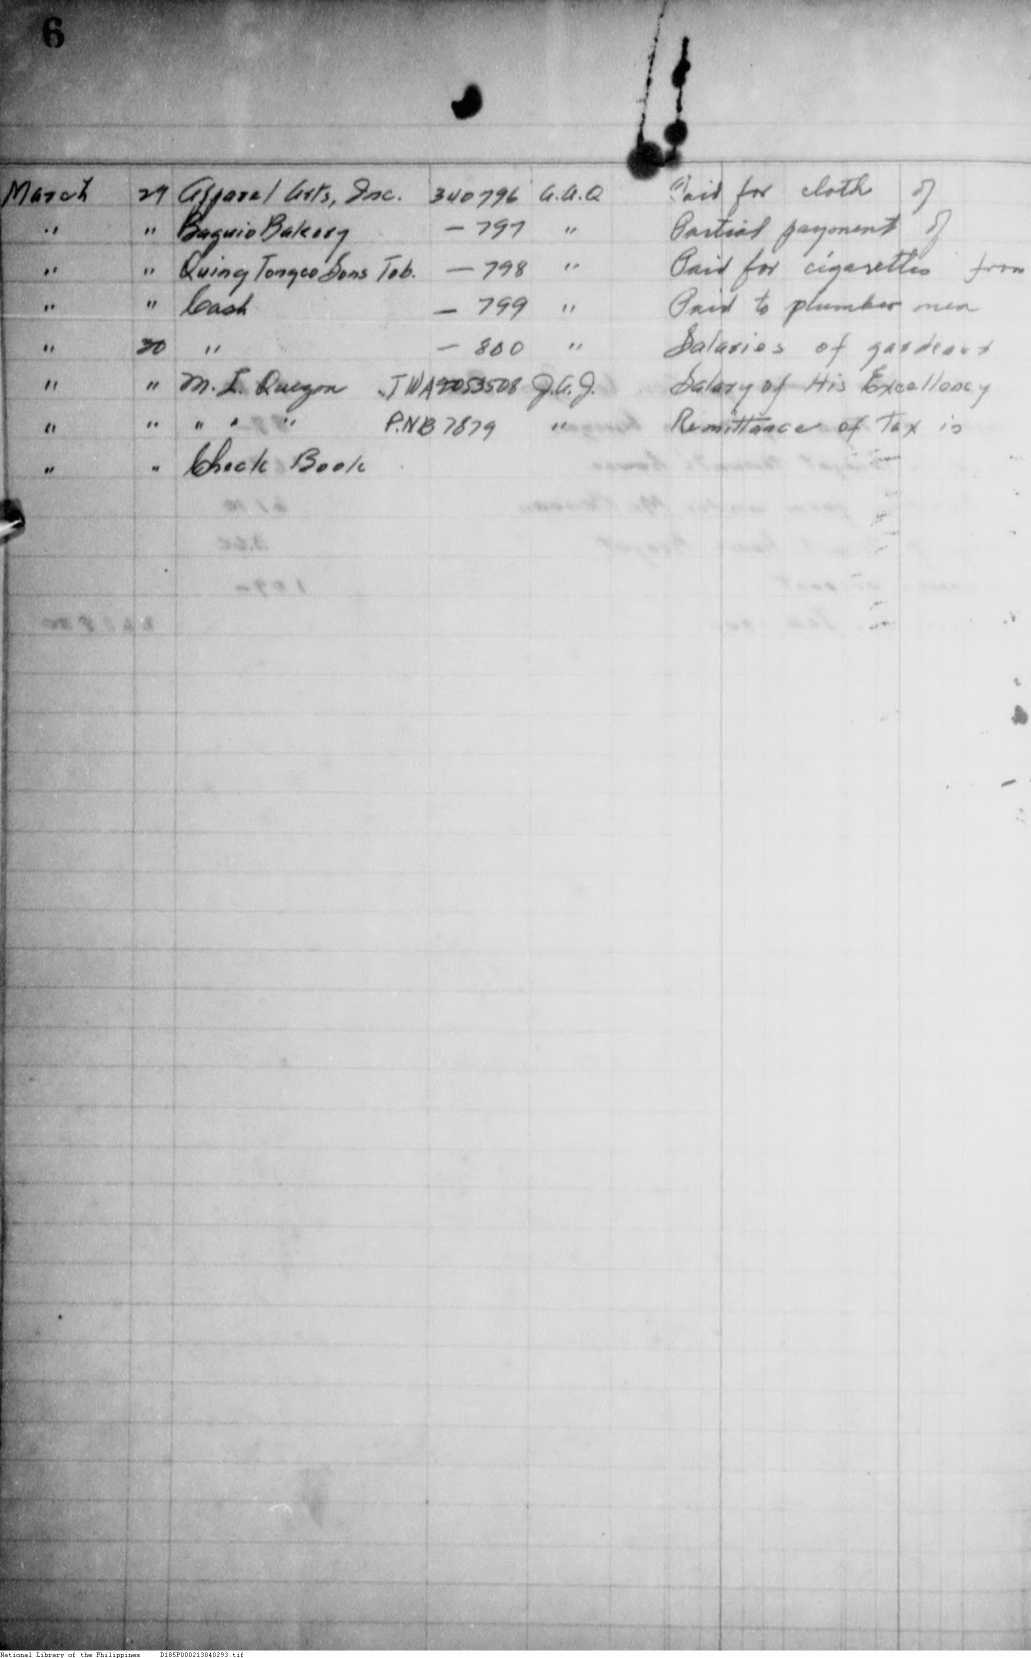 6
March 29 Apparel Arts, Inc. 340796 A.A.Q Paid for cloth of
" " Baguio Bakery — 797 " Partial payment of
" " Quing Tongco Sons Tob. — 798 " Paid for cigarettes from
" " Cash — 799 " Paid to plumber men
" 30 " — 800 " Salaries of gardeners
" " M. L. Quezon TWA 2053508 J.A.J. Salary of His Excellency
" " " " " P.N.B 7879 " Remittance of Tax is
" " Check Book
National Library of the Philippines D185P000213040293.tif